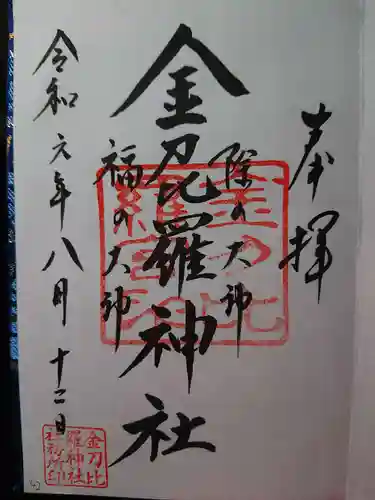 奉拝
除の大神
金刀比羅神社
福の大神
令和六年八月十二日
金刀比
羅神社
社務所印